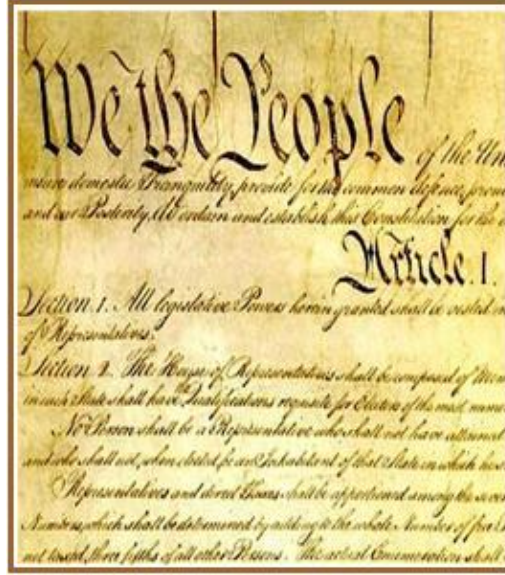 We the People of the Un
insure domestic Tranquility, provide for the common defence, promo
and our Posterity, do ordain and establish this Constitution for the
Article. I.
Section. 1. All legislative Powers herein granted shall be vested in
of Representatives.
Section. 2. The House of Representatives shall be composed of Mem
in each State shall have the Qualifications requisite for Electors of the most nume
No Person shall be a Representative who shall not have attained
and who shall not, when elected, be an Inhabitant of that State in which he s
Representatives and direct Taxes shall be apportioned among the seve
Numbers, which shall be determined by adding to the whole Number of free
not taxed, three fifths of all other Persons. The actual Enumeration shall